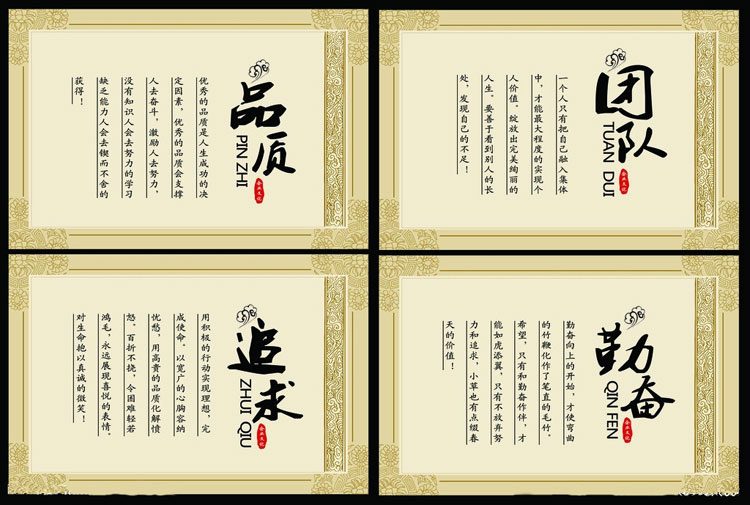 品质
PIN ZHI
企业文化
优秀的品质是人生成功的决
定因素，优秀的品质会支撑
人去奋斗，激励人去努力，
没有知识人会去努力的学习
缺乏能力人会去锲而不舍的
获得！
团队
TUAN DUI
企业文化
一个人只有把自己融入集体
中，才能最大程度的实现个
人价值。绽放出完美绚丽的
人生。要善于看到别人的长
处，发现自己的不足！
追求
ZHUI QIU
企业文化
用积极的行动实现理想，完
成使命。以宽广的心胸容纳
忧愁，用高贵的品质化解愤
怒。百折不挠，令困难轻若
鸿毛，永远展现喜悦的表情。
对生命抱以真诚的微笑！
勤奋
QIN FEN
企业文化
勤奋向上的开始，才使弯曲
的竹鞭化作了笔直的毛竹。
希望，只有和勤奋作伴，才
能如虎添翼，只有不放弃努
力和追求，小草也有点缀春
天的价值！